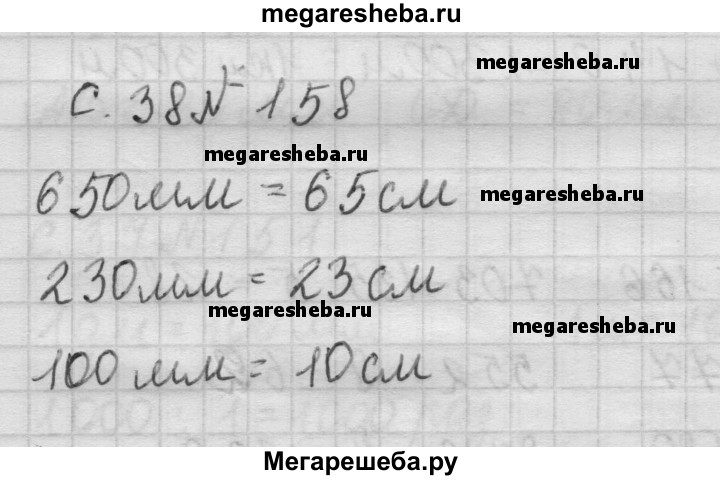 megaresheba.ru
megaresheba.ru
С. 38 № 158
megaresheba.ru
650 мм = 65 см
megaresheba.ru
230 мм = 23 см
megaresheba.ru
megaresheba.ru
100 мм = 10 см
Мегарешеба.ру